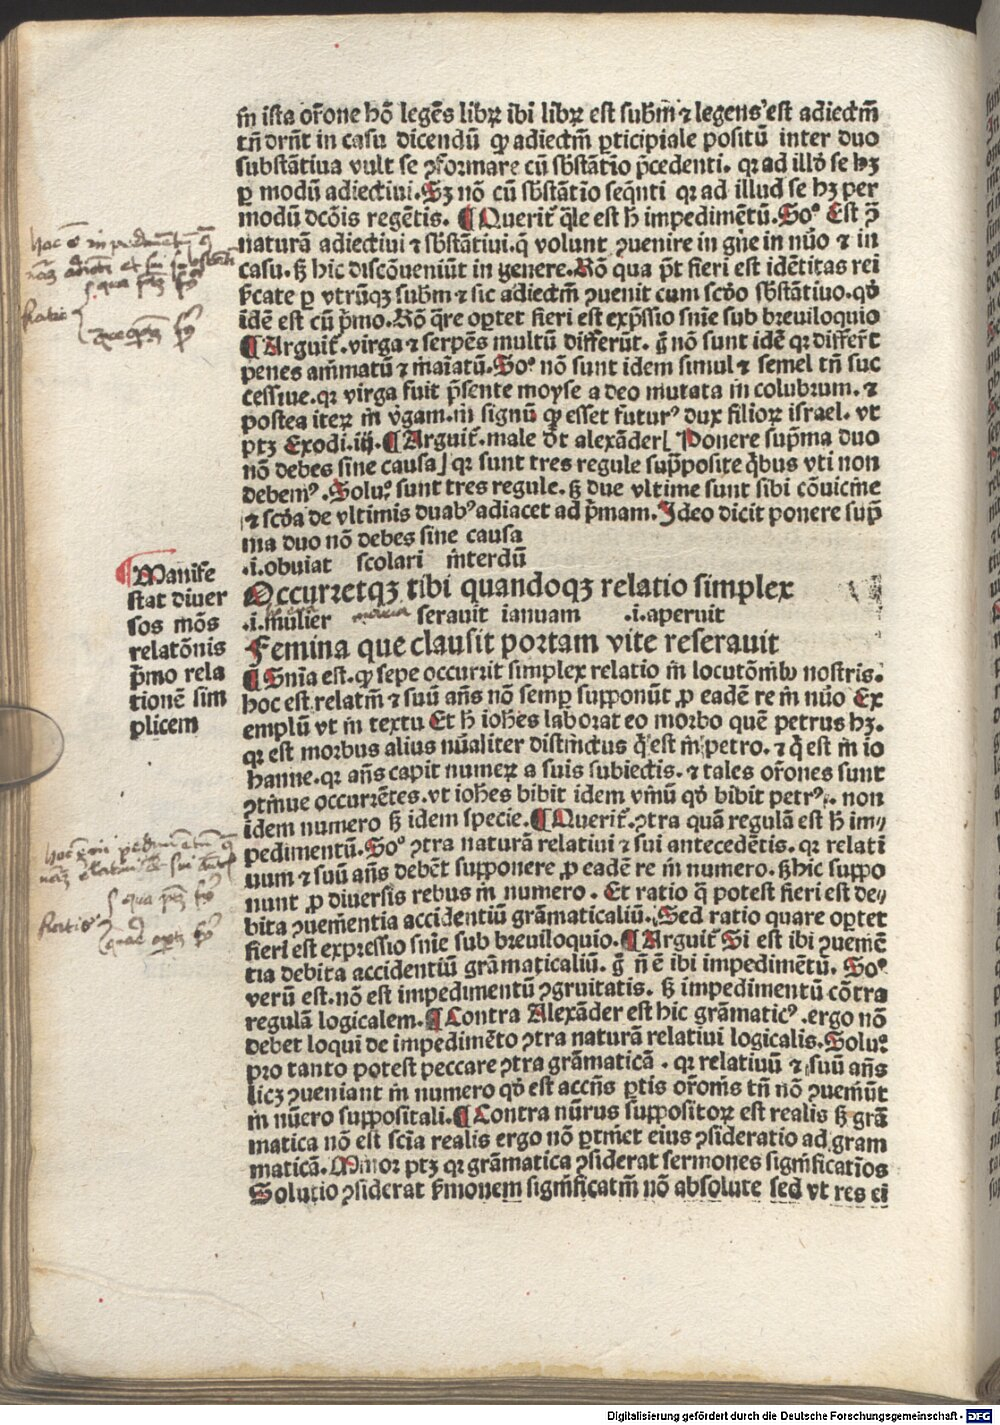 m̄ ista or̄one hō legēs libꝝ ibi libꝝ est subm̄ ⁊ legens est adiectm̄
tn̄ drn̄t in casu dicendū ꝙ adiectm̄ ꝑticipiale positū inter duo
substātiua vult se ꝯformare cū sb̄stātio p̄cedenti. qꝛ ad illō se hꝫ
ꝑ modū adiectiui. Sꝫ nō cū sb̄stātio seq̄nti qꝛ ad illud se hꝫ per
modū dcōis regētis. ¶ Querit̄ q̄le est h̄ impedimētū. Soꝰ Est ꝯ̄
naturā adiectiui ⁊ sb̄stātiui. q̄ volunt ꝯuenire in gn̄e in nūo ⁊ in
casu. ꝭ hic discōueniūt in genere. Rō qua p̄t fieri est idētitas rei
ẜcate ꝑ vtrūqꝫ subm̄ ⁊ sic adiectm̄ ꝯuenit cum scōo sb̄stātiuo. qō
idē est cū p̄mo. Rō q̄re oꝑtet fieri est exp̄ssio sn̄ie sub breuiloquio
¶ Arguit̄. virga ⁊ serpēs multū differūt. ḡ nō sunt idē qꝛ differt̄
penes am̄matū ⁊ īaīatū. Soꝰ nō sunt idem simul ⁊ semel tn̄ suc
cessiue. qꝛ virga fuit p̄sente moyse a deo mutata in colubrum. ⁊
postea iteꝝ in v̄gam. in signū ꝙ esset futurꝰ dux filioꝝ israel. vt
ptꝫ Exodi. iiij. ¶ Arguit̄. male dt̄ alexāder [ Ponere sup̄ma duo
nō debes sine causa ] qꝛ sunt tres regule sup̄posite q̄bus vti non
debemꝰ. Soluꝰ. sunt tres regule. ꝭ due vltime sunt sibi cōuicine
⁊ scōa de vltimis duabꝰ adiacet ad p̄mam. Ideo dicit ponere sup̄
ma duo nō debes sine causa
.i. obuiat scolari interdū
Occurretqꝫ tibi quandoqꝫ relatio simplex
.i. mulier maria serauit ianuam .i. aperuit
Femina que clausit portam vite reserauit
¶ Manife
stat diuer
sos mōs
relatōnis
p̄mo rela
tionē sim
plicem
¶ Sn̄ia est. ꝙ sepe occurrit simplex relatio in locutōnibꝰ nostris.
hoc est relatm̄ ⁊ suū an̄s nō semꝑ supponūt ꝓ eadē re in nūo Ex
emplū vt in textu Et h̄ ioh̄es laborat eo morbo quē petrus hꝫ.
qꝛ est morbus alius nūaliter distinctus q̄ est in petro. ⁊ q̄ est in io
hanne. qꝛ an̄s capit numeꝝ a suis subiectis. ⁊ tales or̄ones sunt
ꝯtinue occurrētes. vt ioh̄es bibit idem vinū qō bibit petrꝰ. non
idem numero ꝭ idem specie. ¶ Querit̄. ꝯtra quā regulā est h̄ im⸗
pedimentū. Soꝰ ꝯtra naturā relatiui ⁊ sui antecedētis. qꝛ relati
uum ⁊ suū an̄s debēt supponere ꝓ eadē re in numero. ꝭ hic suppo
nunt ꝓ diuersis rebus in numero. Et ratio q̄ potest fieri est de⸗
bita ꝯueniētia accidentiū grāmaticaliū. Sed ratio quare oꝑtet
fieri est expressio sn̄ie sub breuiloquio. ¶ Arguit̄ Si est ibi ꝯueniē
tia debita accidentiū grāmaticaliū. ḡ n̄ ē ibi impedimētū. Soꝰ
verū est. nō est impedimentū ꝯgruitatis. ꝭ impedimentū cōtra
regulā logicalem. ¶ Contra Alexāder est hic grāmaticꝰ. ergo nō
debet loqui de impedimēto ꝯtra naturā relatiui logicalis. Soluꝰ
pro tanto potest peccare ꝯtra grāmaticā. qꝛ relatiuū ⁊ suū an̄s
licꝫ ꝯueniant in numero qō est accn̄s ꝑtis or̄onis tn̄ nō ꝯueniūt
in nūero suppositali. ¶ Contra nūrus suppositoꝝ est realis ꝭ grā
matica nō est scīa realis ergo nō ꝑtinet eius ꝯsideratio ad gram
maticā. Minor ptꝫ qꝛ grāmatica ꝯsiderat sermones significatīos
Solutio ꝯsiderat ẜmonem significatīm nō absolute sed vt res ei
Digitalisierung gefördert durch die Deutsche Forschungsgemeinschaft - DFG